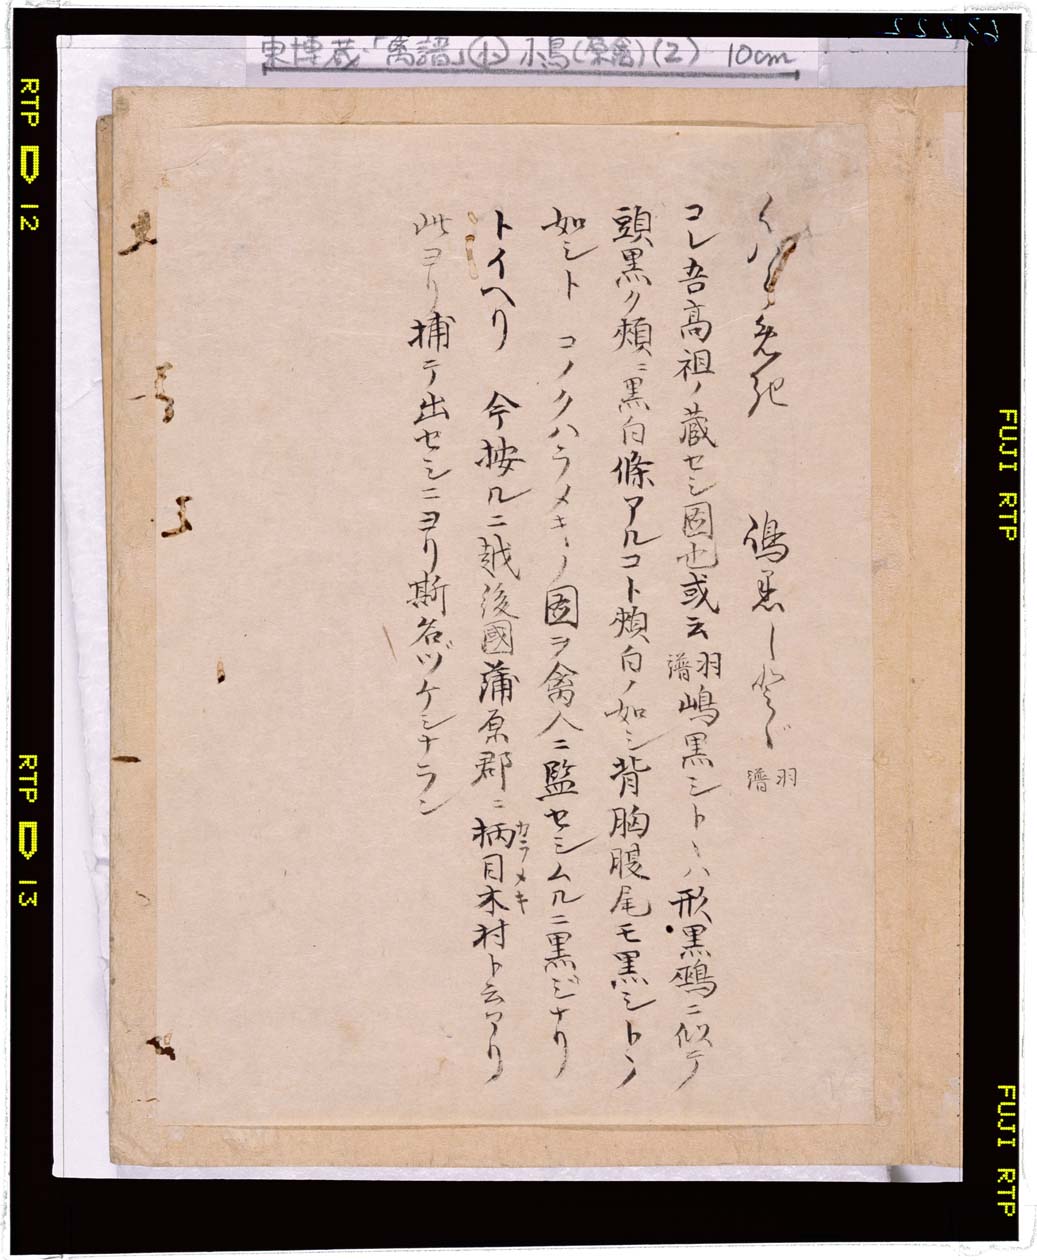 東博蔵「禽譜」小鳥(原禽)(2) 10cm
くハらめき 嶋黒しとゞ 羽譜
コレ吾髙祖ノ蔵セシ圖也或云羽譜嶋黒シトヽハ形黒鵐ニ似テ
頭黒ク頬ニ黒白條アルコト頬白ノ如シ背胸腹尾モ黒シトヽ
如シト コノクハラメキノ圖ヲ禽人ニ監セシムルニ黒ジナリ
トイヘリ 今按ルニ越後國蒲原郡ニ柄目木村ト云アリ
カラメキ
此ヨリ捕テ出セシニヨリ斯名ヅケシナラン
RTP 12
RTP 13
FUJI RTP
FUJI RTP